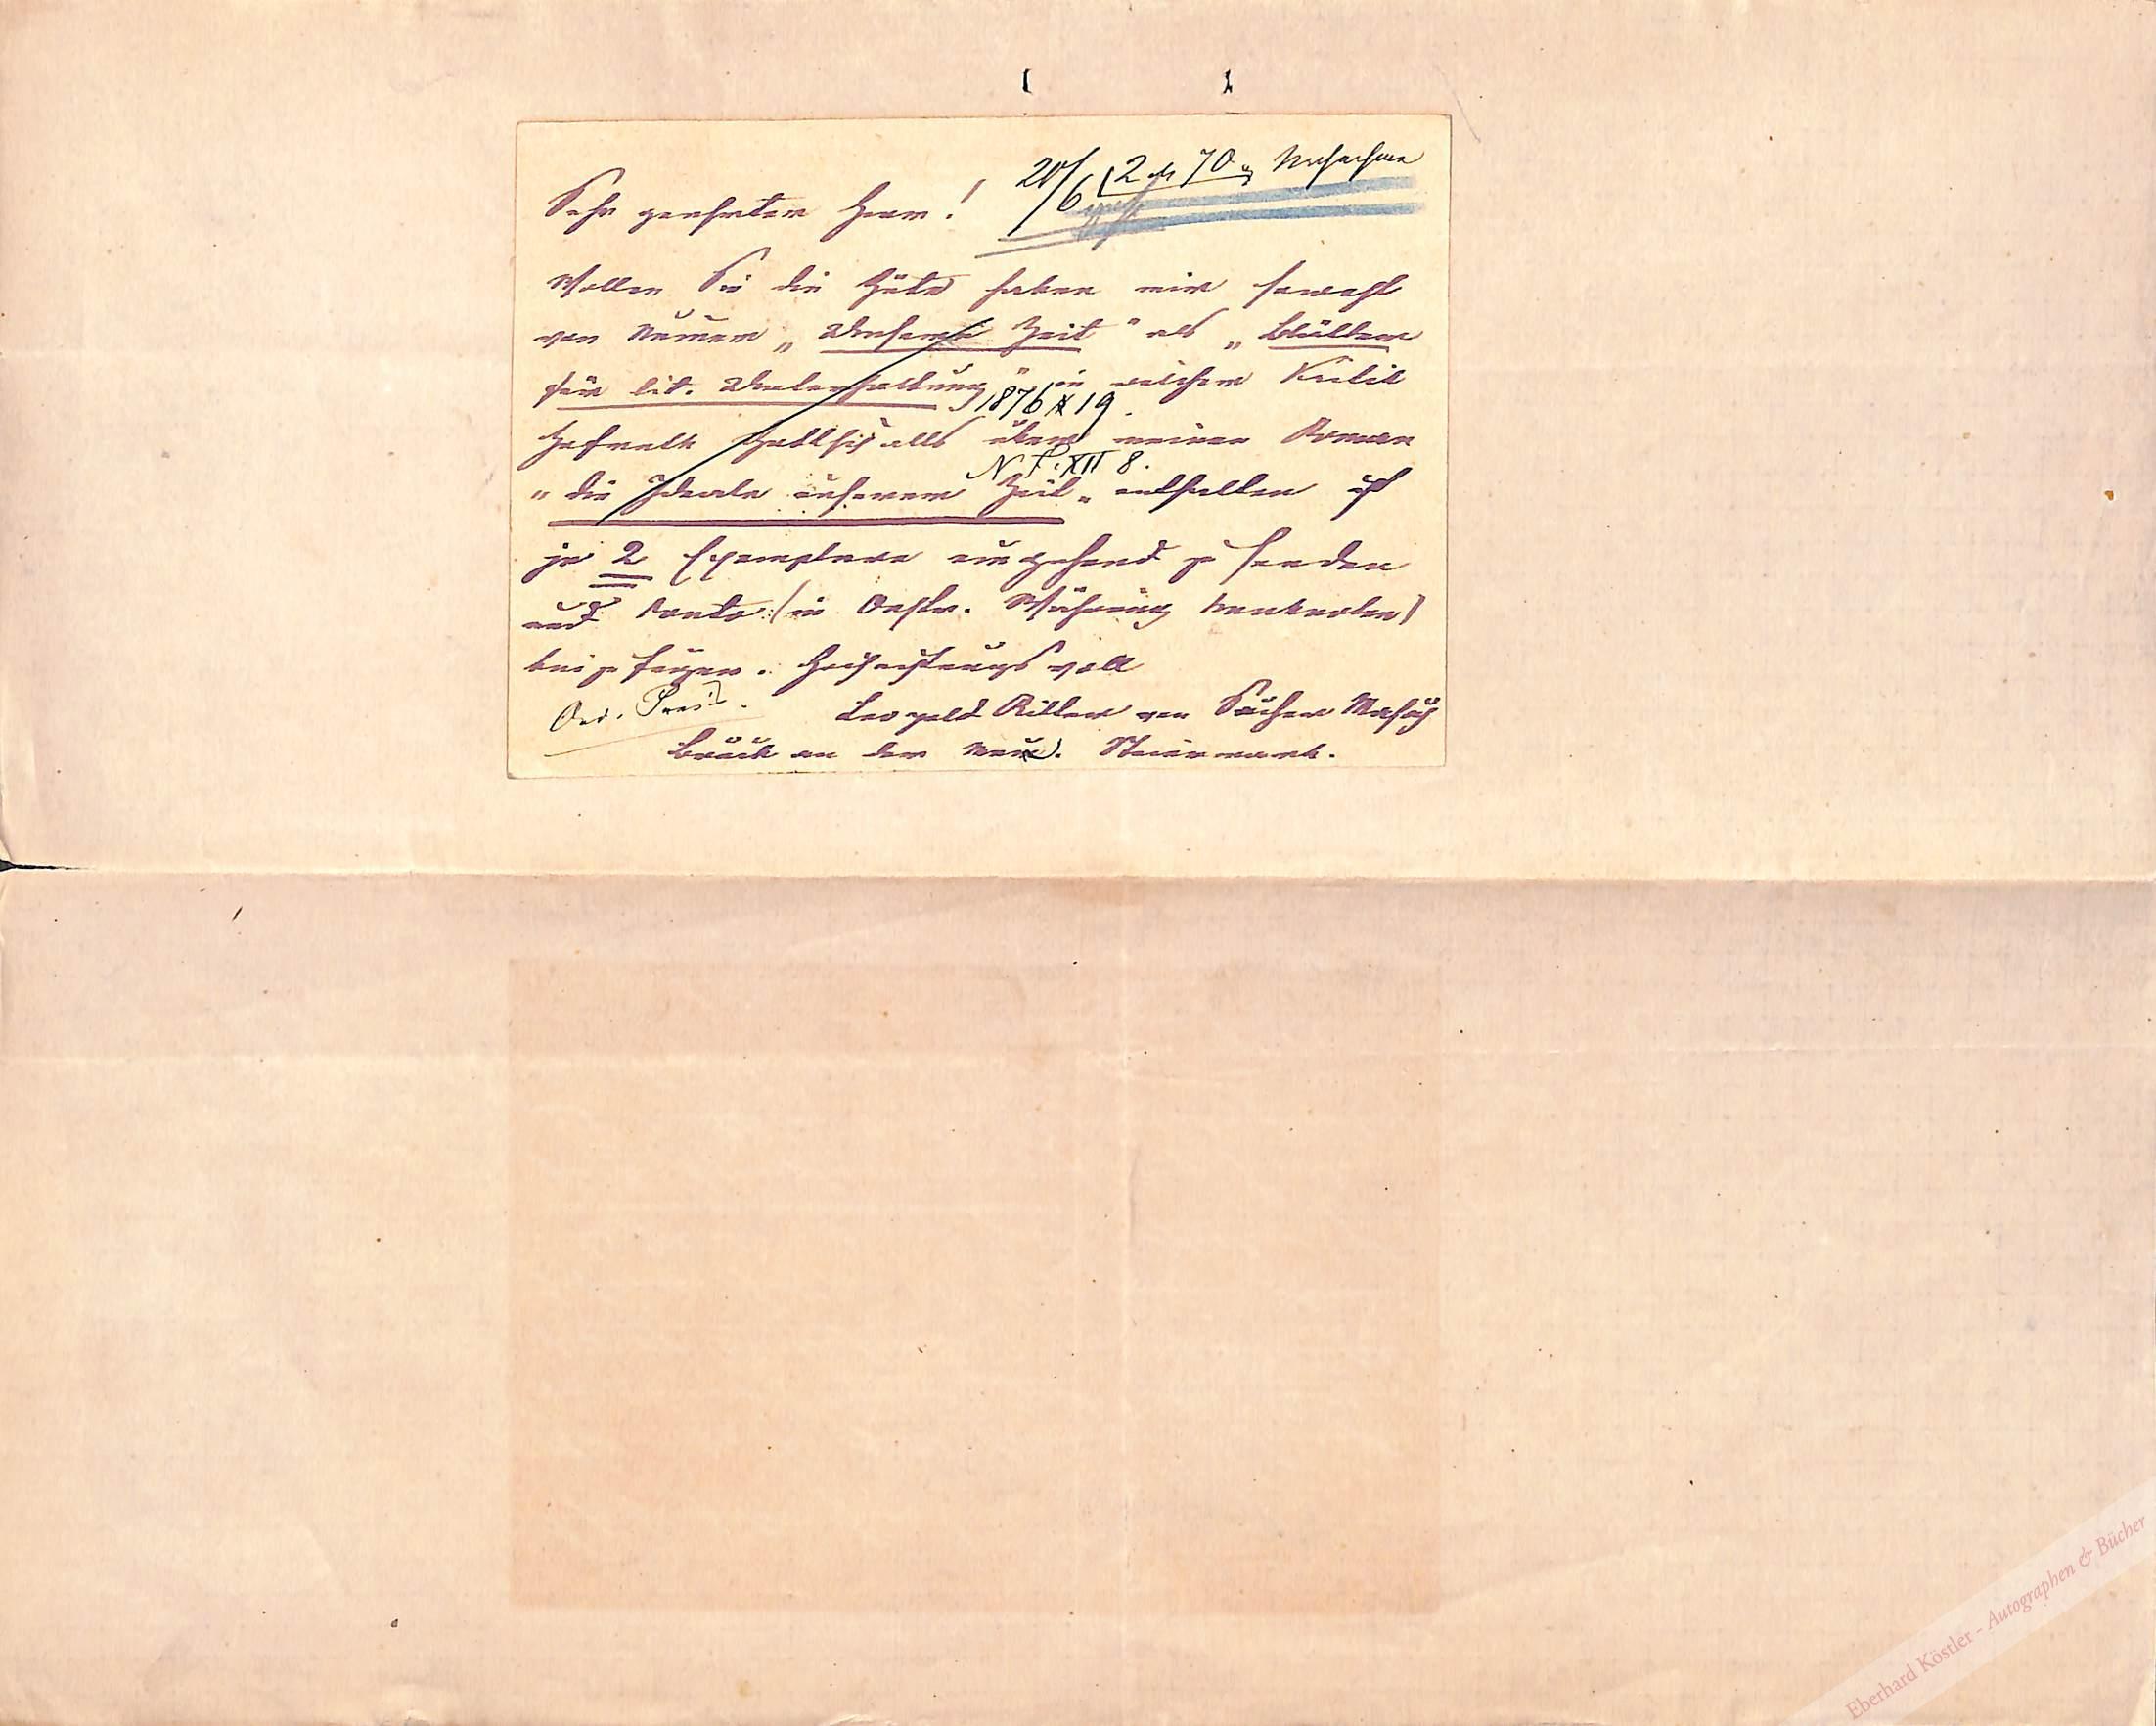 20/6 2 70 Nachnahme
Sehr geehrter Herr!
Wollen Sie die Güte haben mir sowohl
von Nummer „Unsere Zeit" als „Blätter
für lit. Unterhaltung" in welcher Kritik
1876 19.
Hofrath Gottschalls über meinen Roman
N. F. XII 8.
„die Ideale unserer Zeit" enthalten ist
je 2 Exemplare umgehend zu senden
und Conto (in Oestr. Währung
beizufügen. Hochachtungsvoll
Ord. Preis.
Leopold Ritter von Sacher Masoch
Bruck an der Mur. Steiermark.
Eberhard Köstler - Autographen & Bücher